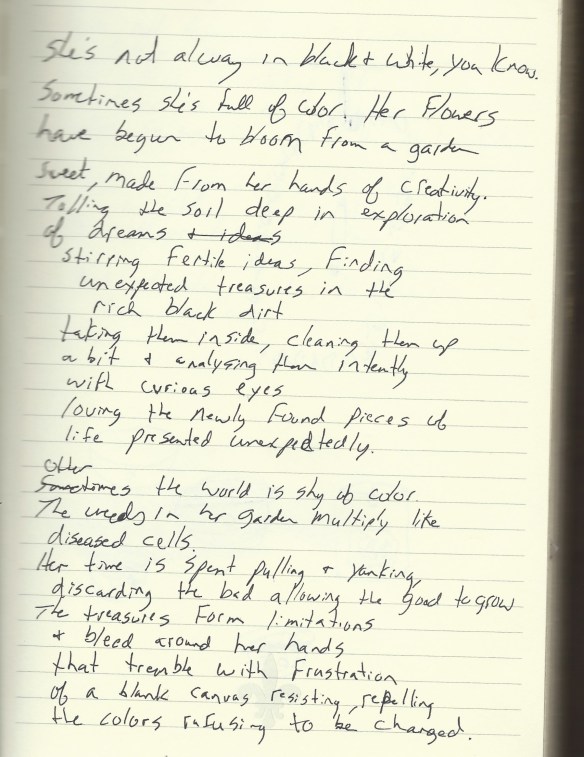 She's not alway in black + white, you know.
Sometimes she's full of color. Her Flowers
have begun to bloom from a garden
sweet, made from her hands of creativity.
Tilling the soil deep in exploration
of dreams + ideas
stirring fertile ideas, finding
unexpected treasures in the
rich black dirt
taking them inside, cleaning them up
a bit + analysing them intently
with curious eyes
loving the newly found pieces of
life presented unexpectedly.
other
Sometimes the world is shy of color.
The weeds in her garden multiply like
diseased cells.
Her time is spent pulling + yanking,
discarding the bad allowing the good to grow
The treasures form limitations
+ bleed around her hands
that tremble with frustration
of a blank canvas resisting, repelling
the colors refusing to be changed.